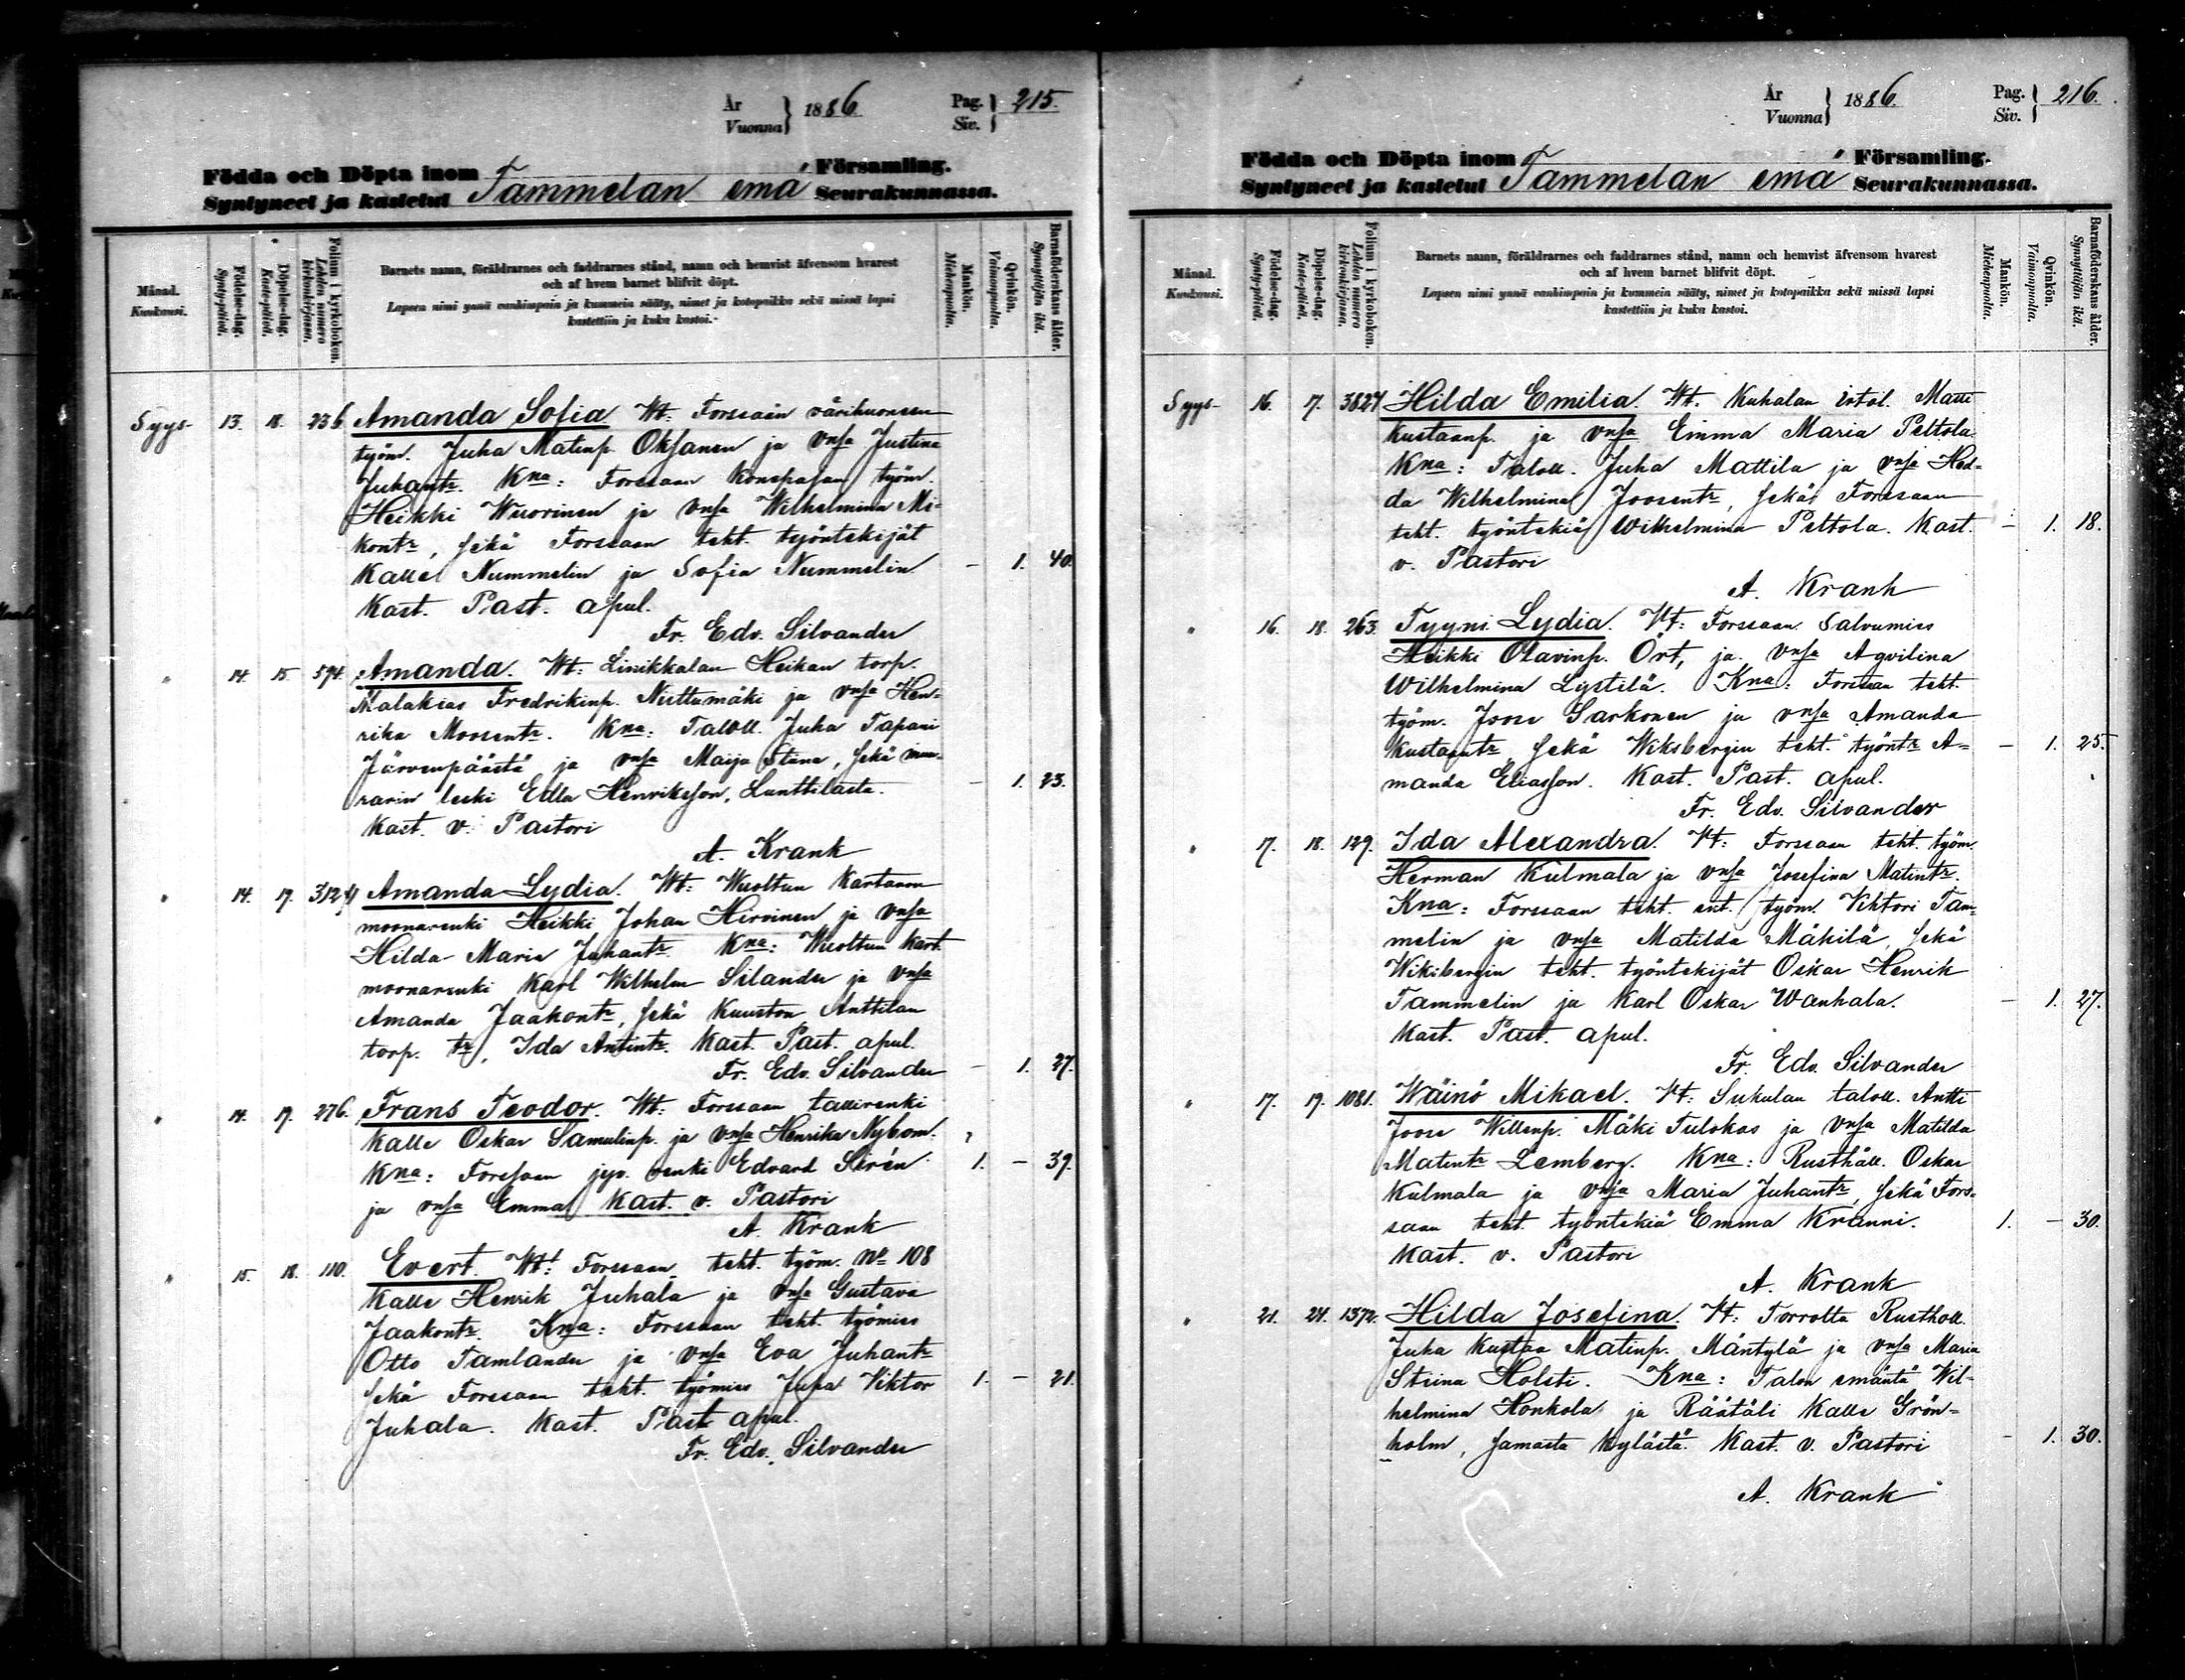 År
Vuonna } 1886. Pag.
Siv. } 215.
Födda och Döpta inom Församling.
Syntyneet ja kastetut Tammelan emä Seurakunnassa.
Månad.
Kuukausi.
Födelse-dag.
Synty-päivä.
Döpelse-dag.
Kaste-päivä.
Folium i kyrkoboken.
Lehden numero kirkonkirjassa.
Barnets namn, föräldrarnes och faddrarnes stånd, namn och hemvist äfvensom hvarest
och af hvem barnet blifvit döpt.
Lapsen nimi ynnä vanhimpain ja kummein sääty, nimet ja kotopaikka sekä missä lapsi
kastettiin ja kuka kastoi.
Mankön.
Miehenpuolta.
Qvinkön.
Vaimonpuolta.
Barnaföderskans ålder.
Synnyttäjän ikä.
Syys- 13. 18. 236 Amanda Sofia Wt: Forssain värihuoneen
työm. Juha Matinp. Oksanen ja vnsa Justina
Juhantr. Kna: Forssaan työm.
Heikki Wuorinen ja vnsa Wilhelmina Mi-
kontr, sekä Forssaan teht. työntekijät
Kalle Nummelin ja Sofia Nummelin - 1. 40.
Kast. Past. apul.
Fr. Edv. Silvander
" 14. 15. 594. Amanda. Wt: Liinikkalan Heikan torp.
Malakias Fredrikinp. Niittumäki ja vnsa Hen-
rika Moosentr. Kna: Taloll. Juha Tapani
Järvenpäästä ja vnsa Maija Stina, sekä muu-
rarin leski Edla Henriksson, Lunttilasta. - 1. 23.
Kast. v. Pastori
A. Krank
" 14. 19. 312 Amanda Lydia. Wt: Wuoltun Kartanon
moonarenki Heikki Johan Hirvinen ja vnsa
Hilda Maria Juhantr. Kna: Wuoltun kart.
moonarenki Karl Wilhelm Silander ja vnsa
Amanda Jaakontr, sekä Kuuston Anttilan
torp. tr, Ida Antintr. Kast. Past. apul.
Fr. Edv. Silvander - 1. 27.
" 14. 19. 276. Frans Teodor. Wt: Forssaan tallirenki
Kalle Oskar Samulinp. ja vnsa Henrika Nybom.
Kna: Forssaan jyv. renki Edvard Sirén 1. - 39.
ja vnsa Emma Kast. v. Pastori
A. Krank
" 15. 18. 110. Evert. Wt: Forssaan teht. työm. No 108
Kalle Henrik Juhala ja vnsa Gustava
Jaakontr. Kna: Forssaan teht. työmies
Otto Tamlander ja vnsa Eva Juhantr
sekä Forssaan teht. työmies Juha Viktor 1. - 21.
Juhala. Kast. Past. apul.
Fr. Edv. Silvander
År
Vuonna } 1886. Pag.
Siv. } 216.
Födda och Döpta inom Församling.
Syntyneet ja kastetut Tammelan emä Seurakunnassa.
Månad.
Kuukausi.
Födelse-dag.
Synty-päivä.
Döpelse-dag.
Kaste-päivä.
Folium i kyrkoboken.
Lehden numero kirkonkirjassa.
Barnets namn, föräldrarnes och faddrarnes stånd, namn och hemvist äfvensom hvarest
och af hvem barnet blifvit döpt.
Lapsen nimi ynnä vanhimpain ja kummein sääty, nimet ja kotopaikka sekä missä lapsi
kastettiin ja kuka kastoi.
Mankön.
Miehenpuolta.
Qvinkön.
Vaimonpuolta.
Barnaföderskans ålder.
Synnyttäjän ikä.
Syys- 16. 17. Hilda Emilia Wt. Kuhalan itsl. Matti
Kustaanp. ja vnsa Emma Maria Peltola.
Kna: Taloll. Juha Mattila ja vnsa Hed-
da Wilhelmina Joosentr, sekä Forssaan
teht. työntekiä Wilhelmina Peltola. Kast. - 1. 18.
v. Pastori
A. Krank
" 16. 18. 263. Tyyni Lydia. Vt: Forssaan Salvumies
Heikki Olavinp. Ört, ja vnsa Aqvilina
Wilhelmina Lystilä. Kna: Forssaan teht.
työm. Joose Sarkonen ja vnsa Amanda
Kustaantr, sekä Wiksbergin teht. työntr A- - 1. 25.
manda Eliasson. Kast. Past. apul.
Fr. Edv. Silvander
" 17. 18. 129. Ida Alexandra. Vt: Forssaan teht. työm.
Herman Kulmala ja vnsa Josefina Matintr.
Kna: Forssaan teht. ent. työm. Viktori Tam-
melin ja vnsa Matilda Mäkilä, sekä
Wiksbergin teht. työntekijät Oskar Henrik
Tammelin ja Karl Oskar Wanhala. - 1. 27.
Kast. Past. apul.
Fr. Edv. Silvander
" 17. 19. 1081. Wäinö Mikael. Vt: Sukulan taloll. Antti
Joose Willenp. Mäki Tulokas ja vnsa Matilda
Matintr Lemberg. Kna: Rusthåll. Oskar
Kulmala ja vnsa Maria Juhantr, sekä Fors-
saan teht. työntekiä Emma Kranni. 1. - 30.
Kast. v. Pastori
A. Krank
" 21. 24. 1372. Hilda Josefina. Vt: Torrolta Rustholl.
Juha Kustaa Matinp. Mäntylä ja vnsa Maria
Stiina Holsti. Kna: Talon emäntä Wil-
helmina Honkola ja Räätäli Kalle Grön-
holm, samasta kylästä. Kast. v. Pastori - 1. 30.
A. Krank